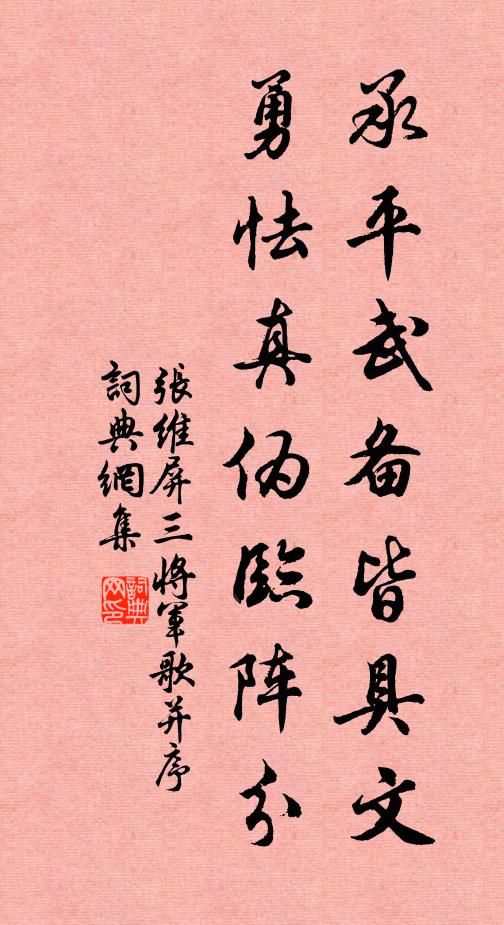 承平武备皆具文
勇怯真伪临阵分
張維屏三將軍歌并序
詞典網集
詞典網印